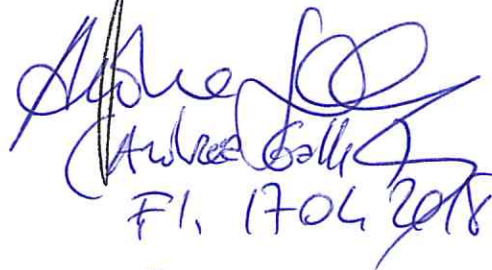 (Andrea Galli)
FI, 17.04.2018